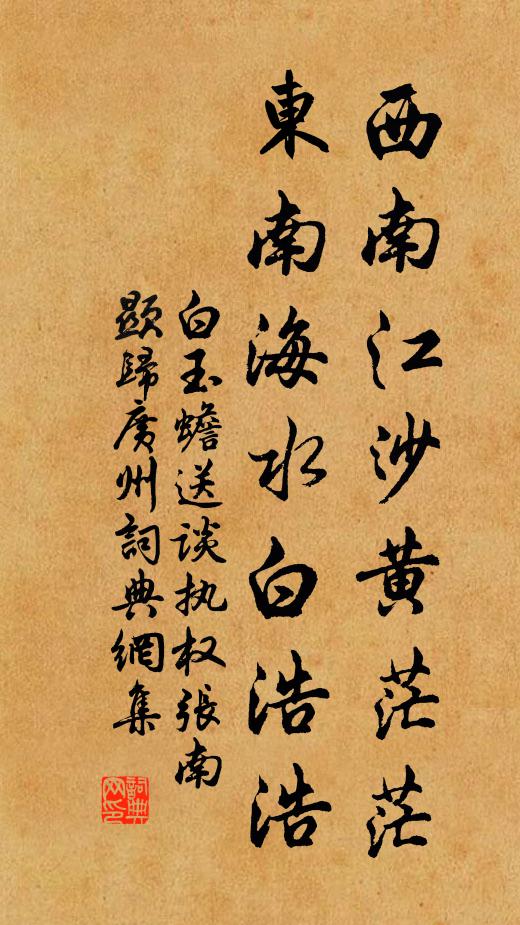 西南江沙黄茫茫
東南海水白浩浩
白玉蟾送谈执权張南
顕歸廣州詞典網集
詞典
网印